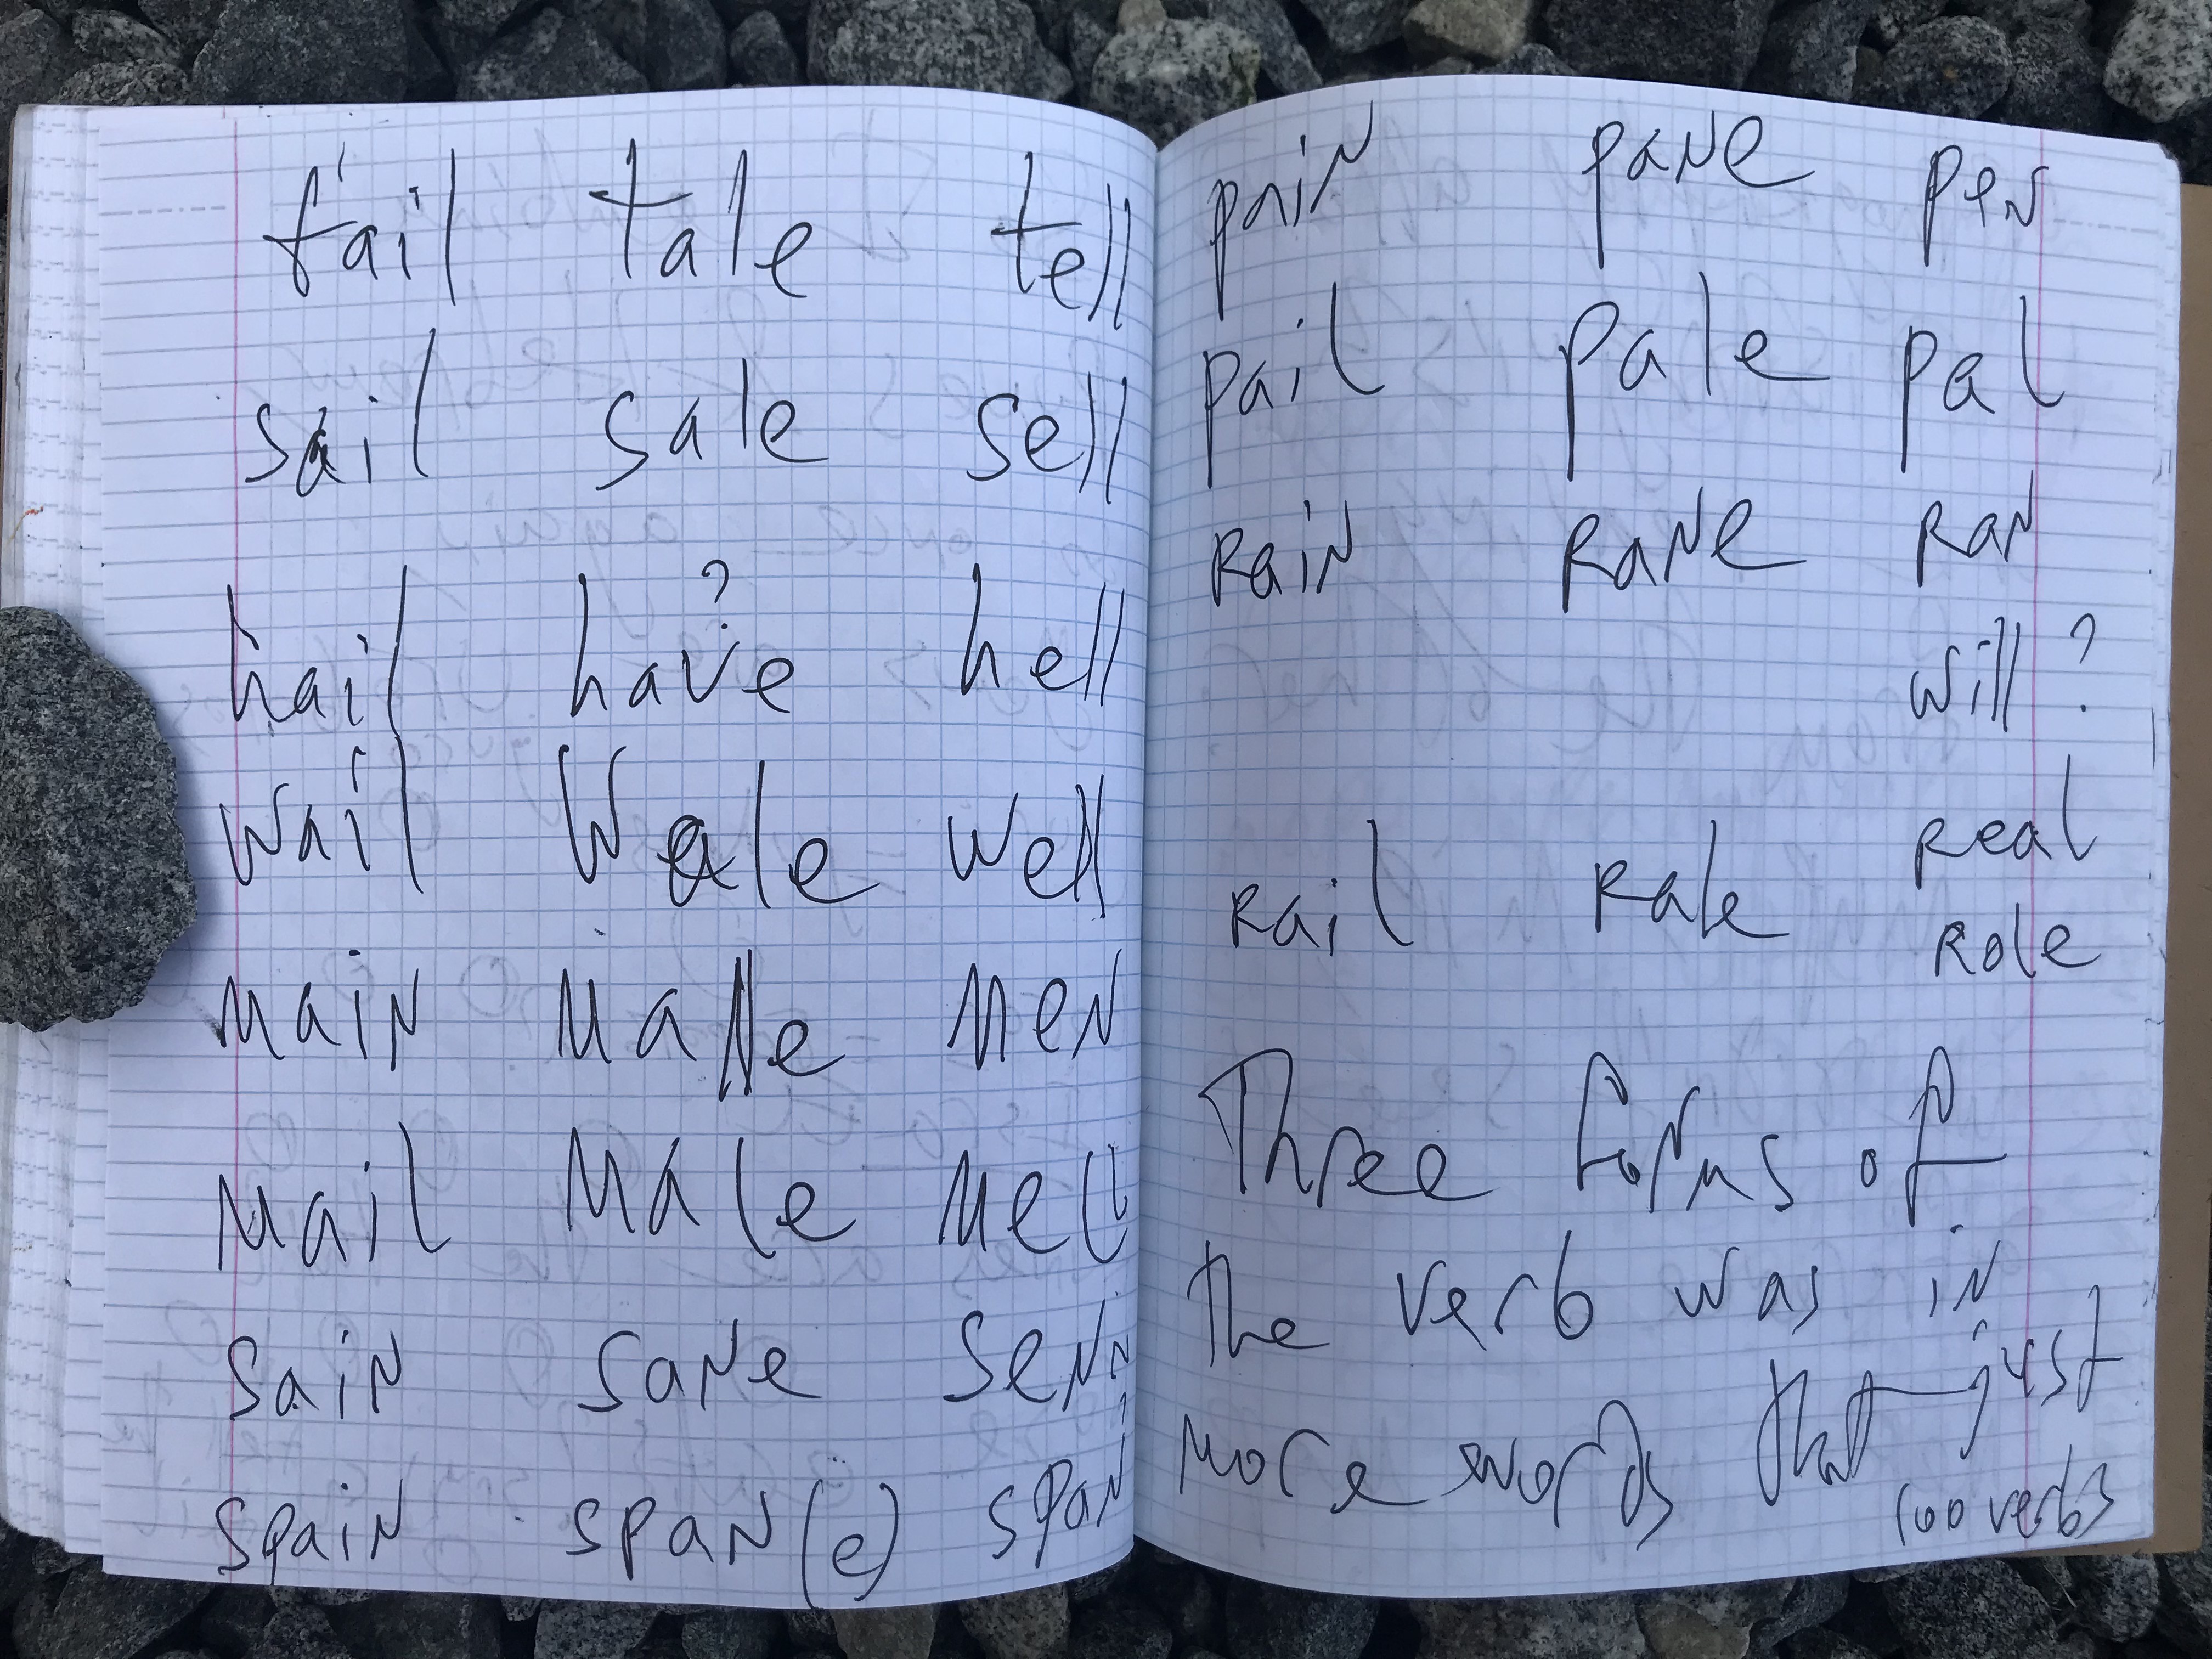 fail tale tell
sail sale sell
hail have? hell
wail wale well
main men
mail male mell
sain sane sen?
spain span(e) span
pain pane pen
pail pale pal
Rain Rane Ran
will?
Rail Rale Real
Role
Three forms of
the verb way in
more words than just
100 verbs